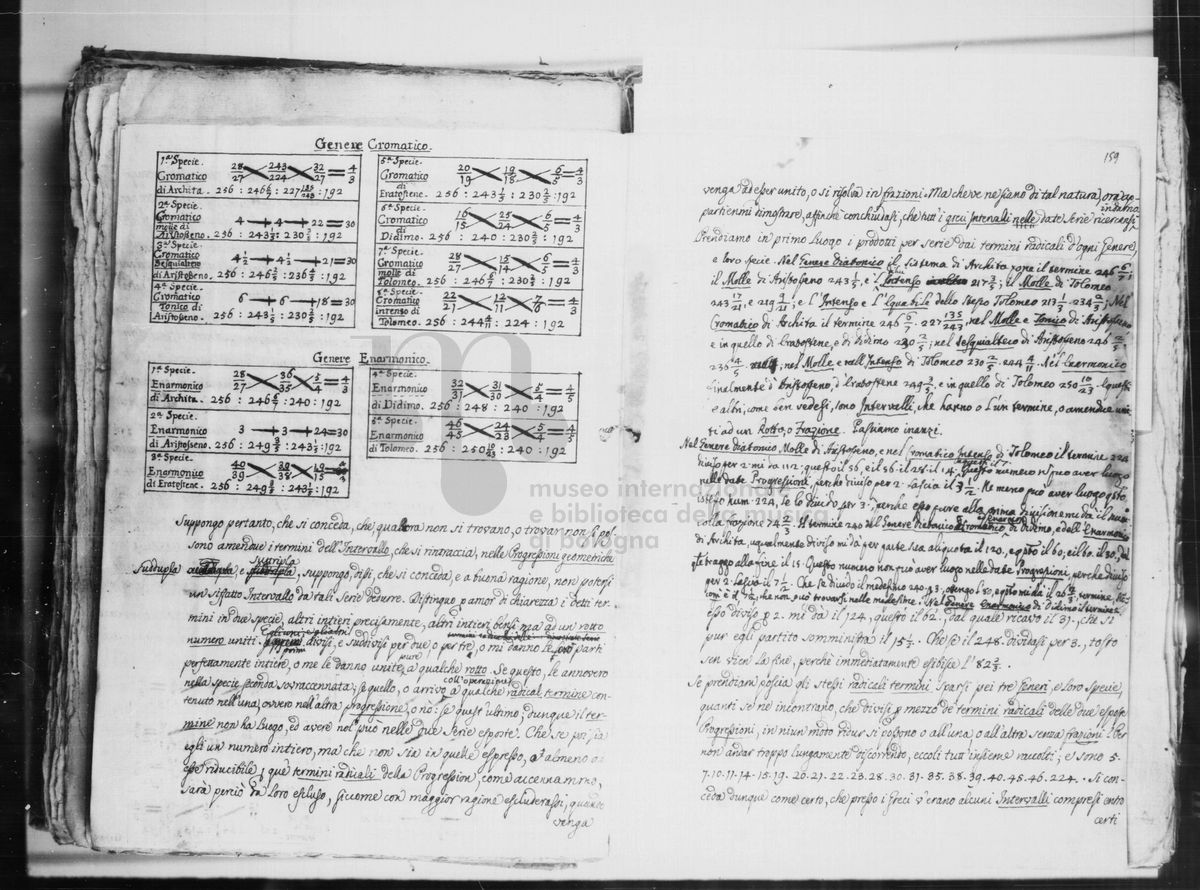 Genere Cromatico.
1.ª Specie. 28/27 243/224 32/27 = 4/3
Cromatico
di Archita. 256 : 246 6/7 : 227 135/243 : 192
2.ª Specie.
Cromatico 4 + 4 + 22 = 30
molle di
Aristosseno. 256 : 243 1/5 : 230 2/5 : 192
3.ª Specie.
Cromatico 4 1/2 + 4 1/2 + 21 = 30
Sesquialtero
di Aristosseno. 256 : 246 2/5 : 236 4/5 : 192
4.ª Specie.
Cromatico 6 + 6 + 18 = 30
Tonico di
Aristosseno. 256 : 243 1/5 : 230 2/5 : 192
5.ª Specie. 20/19 19/18 6/5 = 4/3
Cromatico
di
Eratostene. 256 : 243 1/5 : 230 2/5 : 192
6.ª Specie. 16/15 25/24 6/5 = 4/3
Cromatico
di
Didimo. 256 : 240 : 230 2/5 : 192
7.ª Specie. 28/27 15/14 6/5 = 4/3
Cromatico
molle di
Tolomeo. 256 : 246 6/7 : 230 2/5 : 192
8.ª Specie. 22/21 12/11 7/6 = 4/3
Cromatico
intenso di
Tolomeo. 256 : 244 4/11 : 224 : 192
Genere Enarmonico.
1.ª Specie. 28/27 36/35 5/4 = 4/3
Enarmonico
di Archita. 256 : 246 6/7 : 240 : 192
2.ª Specie.
Enarmonico 3 + 3 + 24 = 30
di Aristosseno. 256 : 249 3/5 : 243 1/5 : 192
3.ª Specie. 40/39 39/38 19/15
Enarmonico
di Eratostene. 256 : 249 3/5 : 243 1/5 : 192
4.ª Specie. 32/31 31/30 5/4 = 4/3
Enarmonico
di Didimo. 256 : 248 : 240 : 192
5.ª Specie. 46/45 24/23 5/4 = 4/3
Enarmonico
di Tolomeo. 256 : 250 10/23 : 240 : 192
Suppongo pertanto, che si conceda, che qualora non si trovano, o trovar non si possono
amendue i termini dell'Intervallo, che si rintraccia, nelle Progressioni geometriche
Suddupla, e Suttripla, suppongo, dissi, che si conceda, e a buona ragione, non potersi
un sifatto Intervallo da tali Serie dedurre. Distinguo p amor di chiarezza i detti ter-
mini in due specie, altri intieri precisamente, altri intieri bensì, ma ad un rotto
numero uniti. divisi, e suddivisi per due, o per tre, o mi danno le parti
perfettamente intiere, o me le danno unite a qualche rotto. Se questo, le annovero
nella specie seconda sovraccennata; se quello, o arrivo coll'operazione a qualche radical termine con-
tenuto nell'una, ovvero nell'altra progressione, o nò: se quest'ultimo, dunque il ter-
mine non ha luogo, ed avere nol può nelle due Serie esposte. Che se poi sia
egli un numero intiero, ma che non sia in quelle espresso, o almeno ad
esse riducibile p que' termini radicali della Progression, come accennammo,
sarà perciò da loro escluso, siccome con maggior ragione escluderassi, quando
venga
159
venga ad esser unito, o si risolva in frazioni. Ma che ve ne siano di tal natura, ora ap-
partienmi dimostrare, affinchè conchiudasi, che tut i greci Intervalli nelle date Serie ricercansi
Prendiamo in primo luogo i prodotti per serie dai termini radicali d'ogni Genere,
e loro specie. Nel Genere diatonico il sistema di Archita pone il termine 246 6/7;
il Molle di Aristosseno 243 1/5, e l'Intenso 217 3/5; il Molle di Tolomeo
243 17/21, e 219 9/21; e l'Intenso e l'Equabile dello stesso Tolomeo 213 1/3. 234 2/3; Nel
Cromatico di Archita il termine 246 6/7. 227 135/243, nel Molle e Tonico di Aristosseno
e in quello di Eratostene, e di Didimo 230 2/5; nel Sesquialtero di Aristosseno 246 2/5,
236 4/5. nel Molle, e nell'Intenso di Tolomeo 230 2/5. e 244 4/11. Nel Enarmonico
finalmente d'Aristosseno, d'Eratostene 249 3/5, e in quello di Tolomeo 250 10/23. Questi
e altri, come ben vedesi, sono Intervalli, che hanno o l'un termine, o amendue uni-
ti ad un Rotto, o Frazione. Passiamo inanzi.
Nel Genere diatonico Molle di Aristosseno, e nel Cromatico Intenso di Tolomeo il termine 224
diviso per 2. mi da 112: questo il 56, e il 56. il 28. il 14. Questo numero nò puo aver luogo
nelle date Progressioni, perchè diviso per 2. lascia il 3 1/2. Ne meno può aver luogo questo
istesso num. 224, se lo divido per 3, perchè esso pure alla prima divisione mi dà il num.
colla frazione 74 2/3. Il termine 240 del Genere Diatonico, Cromatico di Didimo, e dell'Enarmonico
di Archita, ugualmente diviso mi dà per parte sua aliquota il 120, questo il 60; e il 60. il 30, dal
q'le traggo alla fine il 15. Questo numero non può aver luogo nelle date Progressioni, perchè diviso
per 2. lascia il 7 1/2. Che se divido il medesimo 240. p 3, ottengo l'80, e questo mi dà il 26 2/3
che non può trovarsi nelle medesime. Nel Genere Enarmonico di Didimo il termine 248
esso diviso p 2. mi dà il 124, questo il 62, dal quale ricavo il 31, che si
pur egli partito somministra il 15 1/2. Che se il 248. dividasi per 3., tosto
sen vien la fine, perchè immediatamente esibisce l'82 2/3.
Se prendiam poscia gli stessi radicali termini sparsi pei tre Generi, e loro Specie,
quanti se ne incontrano, che divisi p mezzo de' termini radicali delle due esposte
Progressioni, in niun moto ridur si possono o all'una, o all'altra senza frazioni? Per
non andar troppo lungamente discorrendo, eccoli tutti insieme raccolti; e sono 5.
7.10.11.14.15.19.20.21.22.23.28.30.31.35.38.39.40.45.46.224. Si con-
ceda dunque come certo, che presso i Greci v'erano alcuni Intervalli compresi entro
certi
museo internazionale
e biblioteca della musica
di bologna